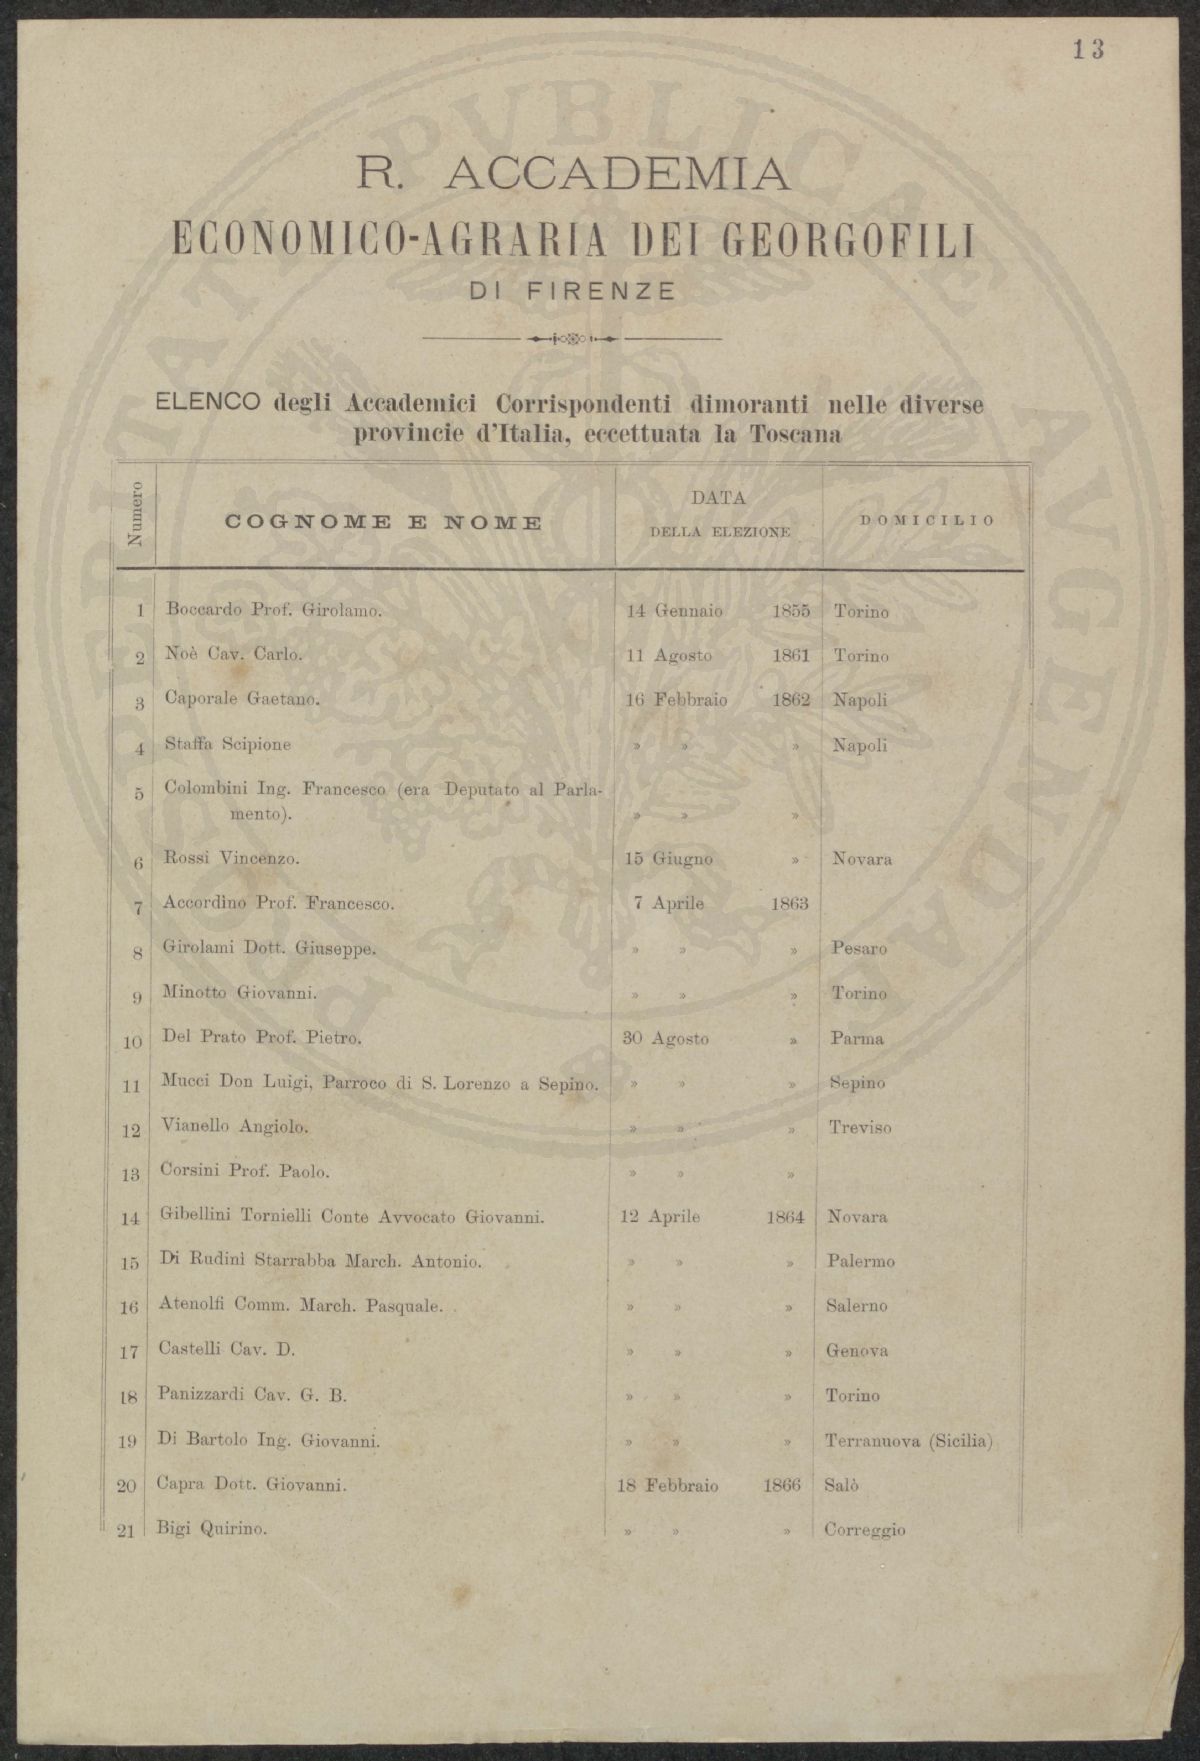 13
R. ACCADEMIA
ECONOMICO-AGRARIA DEI GEORGOFILI
DI FIRENZE
ELENCO degli Accademici Corrispondenti dimoranti nelle diverse
provincie d'Italia, eccettuata la Toscana
Numero COGNOME E NOME DATA DELLA ELEZIONE DOMICILIO
1 Boccardo Prof. Girolamo. 14 Gennaio 1855 Torino
2 Noè Cav. Carlo. 11 Agosto 1861 Torino
3 Caporale Gaetano. 16 Febbraio 1862 Napoli
4 Staffa Scipione » » » Napoli
5 Colombini Ing. Francesco (era Deputato al Parla-
mento). » » »
6 Rossi Vincenzo. 15 Giugno » Novara
7 Accordino Prof. Francesco. 7 Aprile 1863
8 Girolami Dott. Giuseppe. » » » Pesaro
9 Minotto Giovanni. » » » Torino
10 Del Prato Prof. Pietro. 30 Agosto » Parma
11 Mucci Don Luigi, Parroco di S. Lorenzo a Sepino. » » » Sepino
12 Vianello Angiolo. » » » Treviso
13 Corsini Prof. Paolo. » » »
14 Gibellini Tornielli Conte Avvocato Giovanni. 12 Aprile 1864 Novara
15 Di Rudinì Starrabba March. Antonio. » » » Palermo
16 Atenolfi Comm. March. Pasquale. » » » Salerno
17 Castelli Cav. D. » » » Genova
18 Panizzardi Cav. G. B. » » » Torino
19 Di Bartolo Ing. Giovanni. » » » Terranuova (Sicilia)
20 Capra Dott. Giovanni. 18 Febbraio 1866 Salò
21 Bigi Quirino. » » » Correggio
PROSPERITATI PUBLICAE AUGENDAE